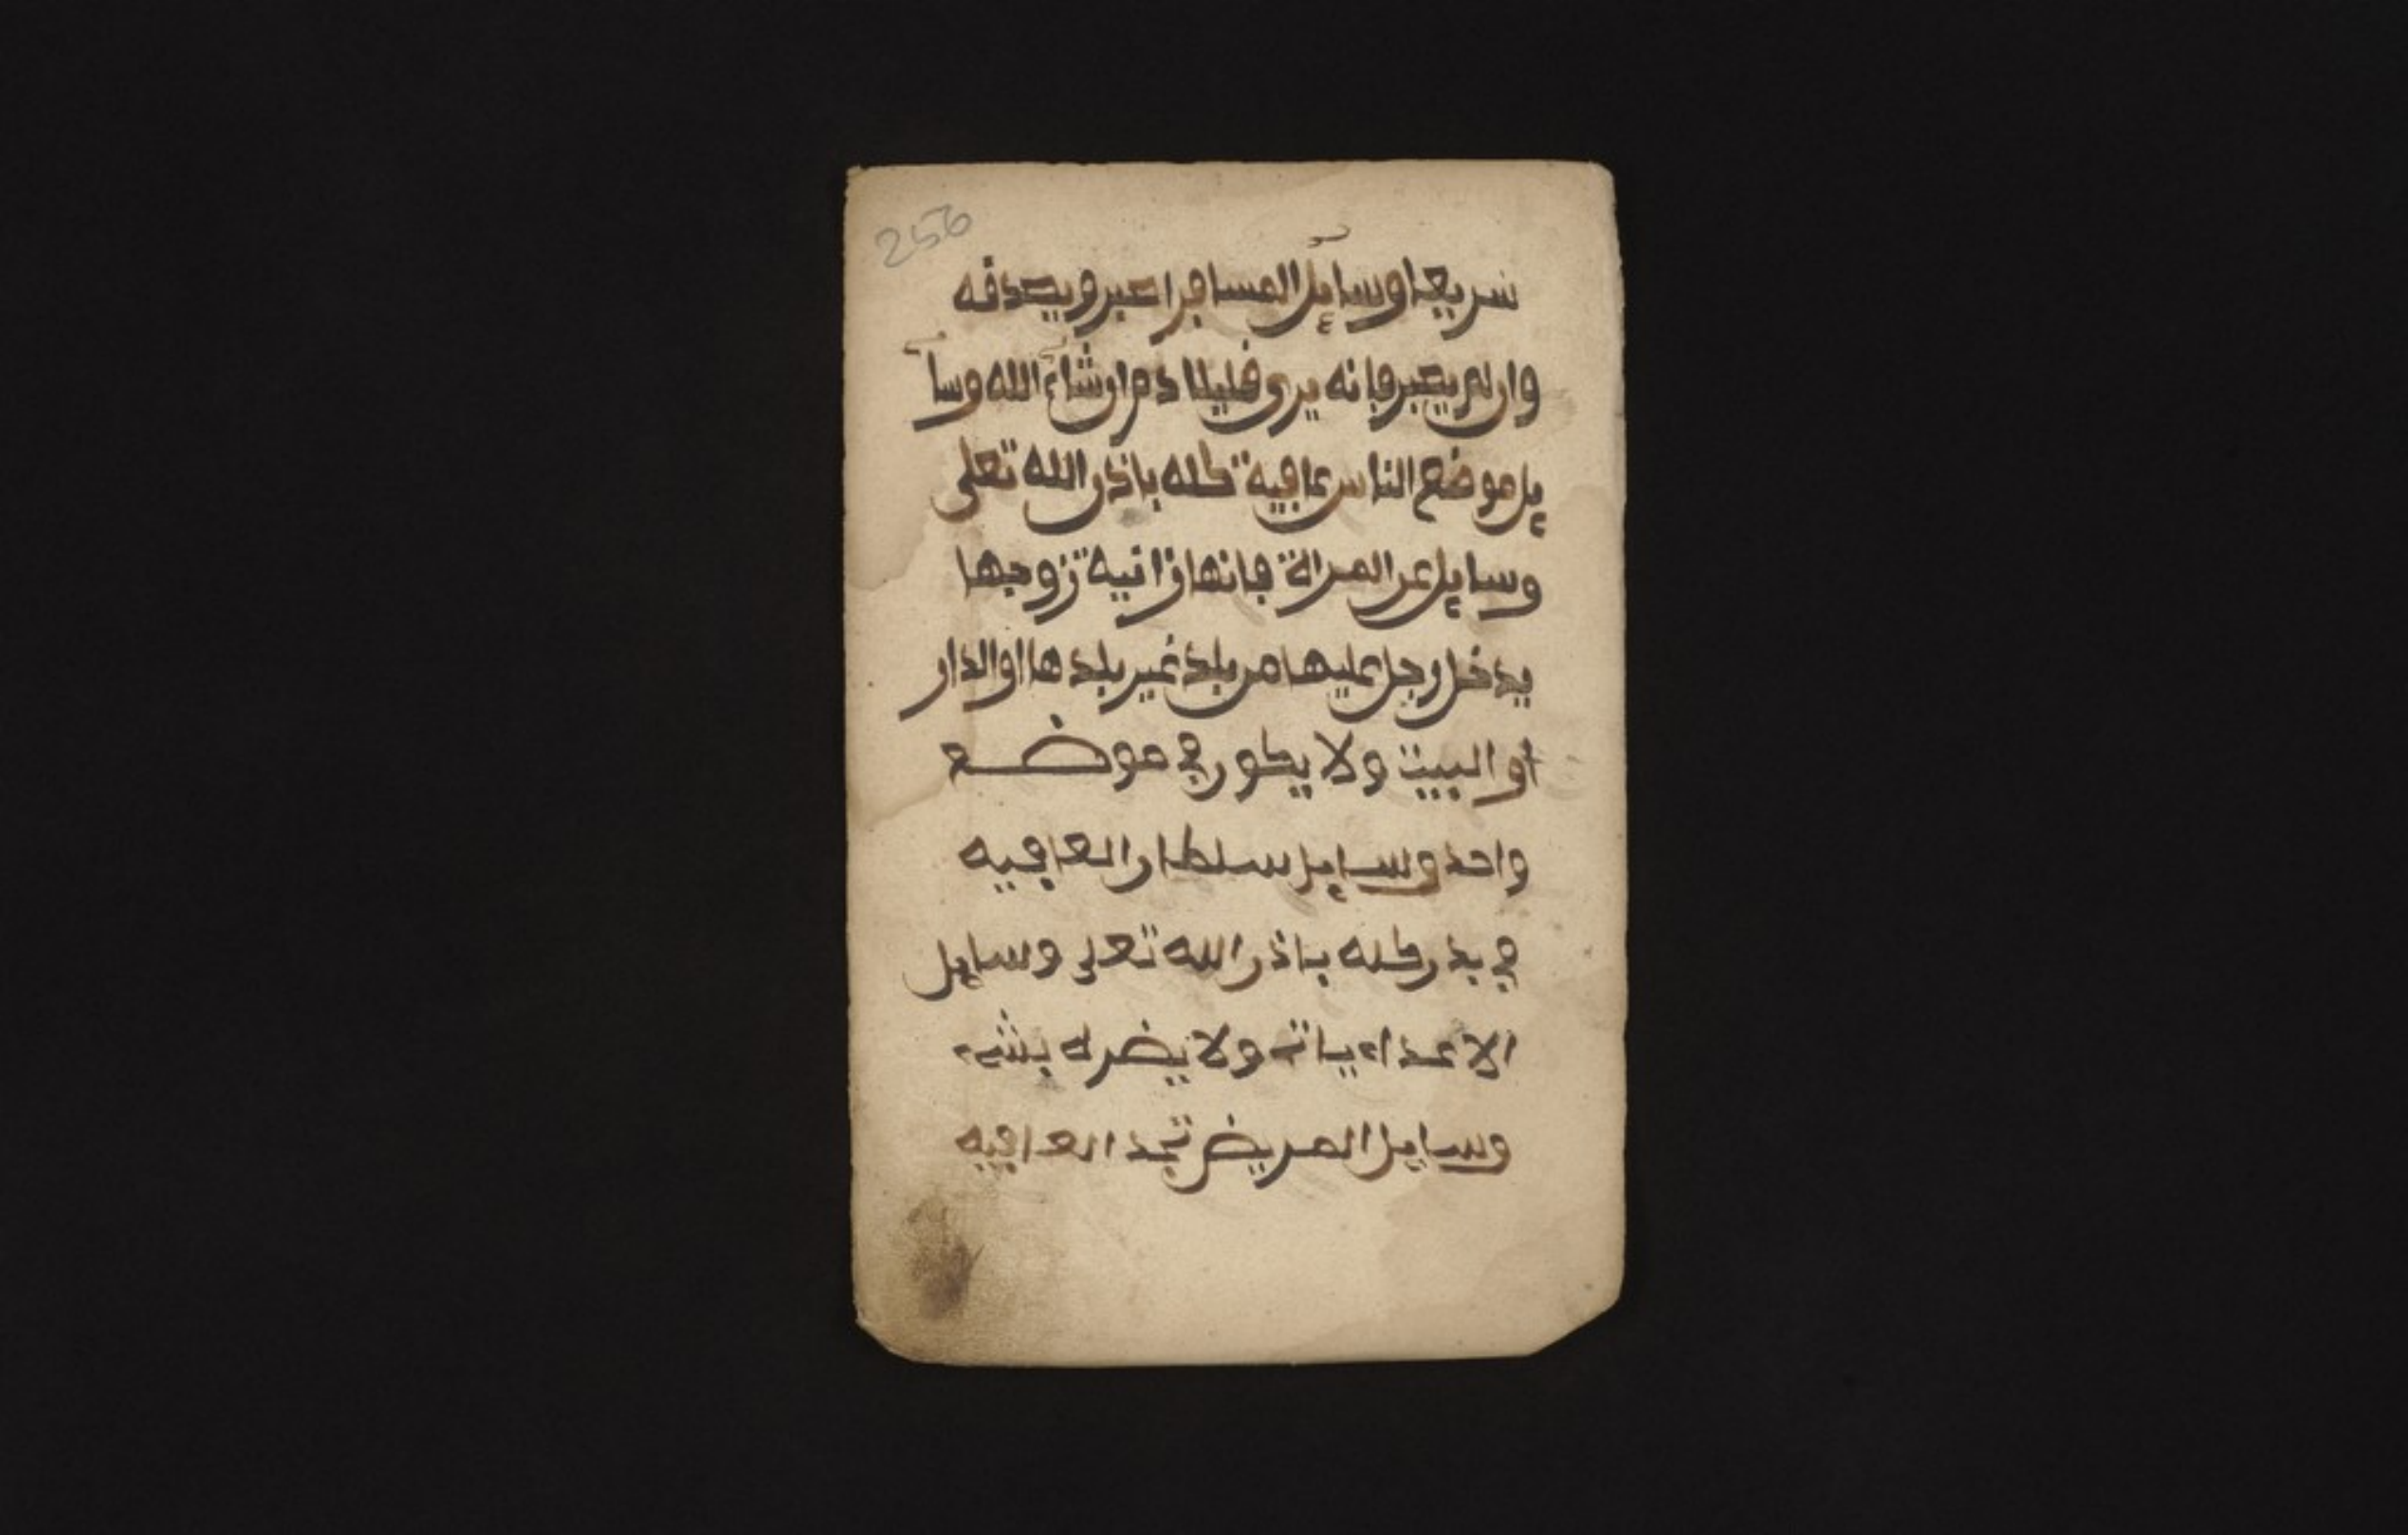 256
سريعا وسايل المسافر اصبر ويصدفه
وان لم يصبر فانه يرى قليلا دم ان شاء الله وسا
يل موضع الناس عافية كله باذن الله تعلى
وسايل عن المراة فانها زانية زوجها
يدخل رجل عليها من بلد غير بلدها او الدار
او البيت ولا يكون في موضع
واحد وسايل سلطان العافيه
في يد ركله باذن الله تعلى وسايل
الاعداء ياته ولا يضر له بشيء
وسايل المريض تجد العافيه